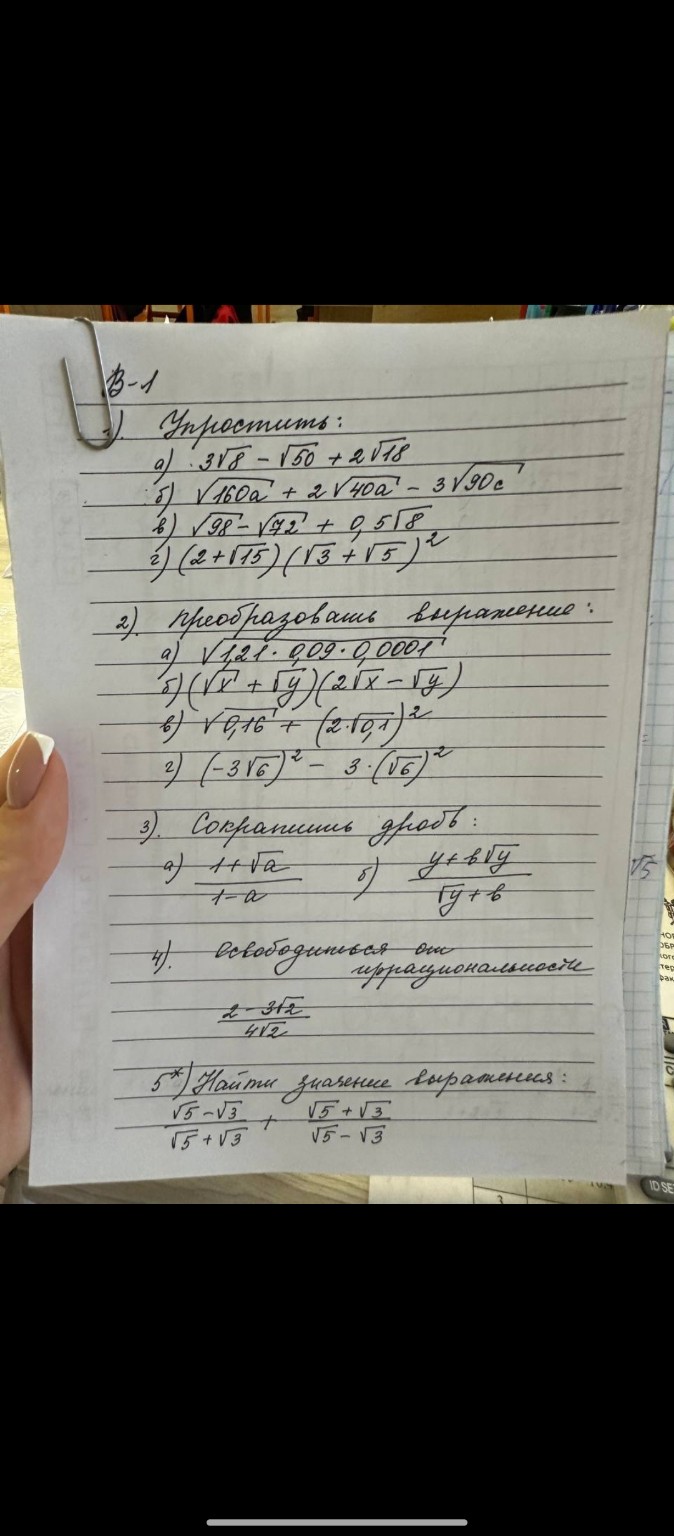 В-1
1). Упростить:
а) 3√8 - √50 + 2√18
б) √160а + 2√40а - 3√90с
в) √98 - √72 + 0,5√8
г) (2+√15)(√3 + √5)²
2). преобразовать выражение:
а) √1,21 · 0,09 · 0,0001
б) (√x + √y)(2√x - √y)
в) √0,16 + (2·√0,1)²
г) (-3√6)² - 3·(√6)²
3). Сократить дробь:
а) (1+√а)/(1-а) б) (y+в√y)/(√y+в)
√5
4). Освободиться от
иррациональности
(2-3√2)/(4√2)
5*) Найти значение выражения:
(√5-√3)/(√5+√3) + (√5+√3)/(√5-√3)
ID SE
3